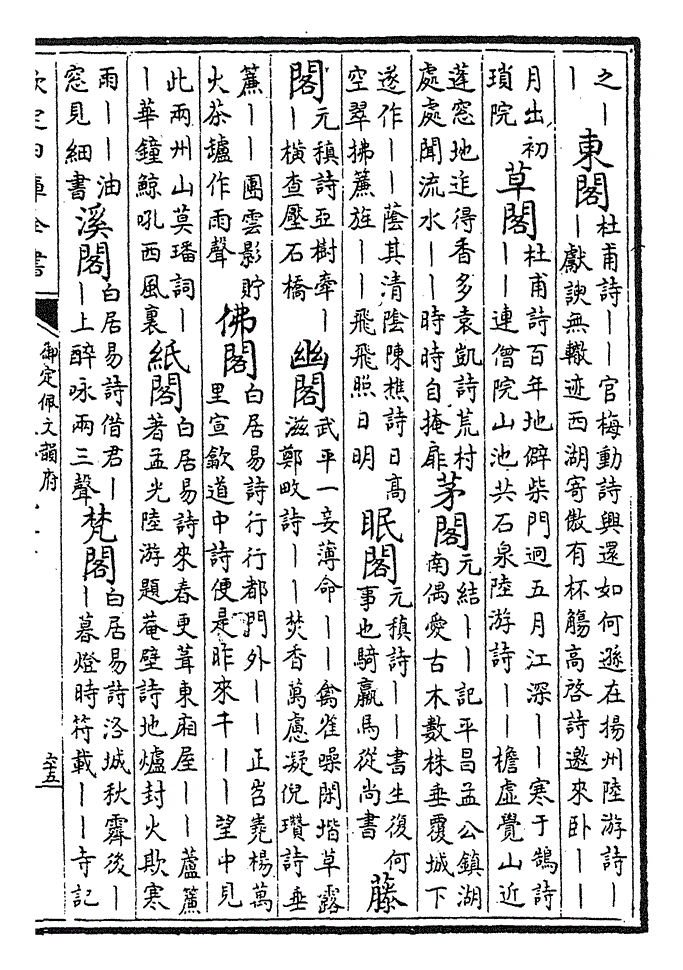 之｜｜東閣杜甫詩｜｜官梅動詩興還如何遜在揚州陸游詩｜｜獻諛無轍迹西湖寄傲有杯觴高啓詩邀來卧｜｜
月出初瑣院草閣杜甫詩百年地僻柴門迥五月江深｜｜寒于鵠詩｜｜連僧院山池共石泉陸游詩｜｜檐虛覺山近
蓬窓地迮得香多袁凱詩荒村處處聞流水｜｜時時自掩扉茅閣元結｜｜記平昌孟公鎮湖南偶愛古木數株垂覆城下
遂作｜｜蔭其清陰陳樵詩日高空翠拂簾旌｜｜飛飛照日明眠閣元稹詩｜｜書生復何事也騎羸馬從尚書藤
閣元稹詩亞樹牽｜｜橫查壓石橋幽閣武平一妾薄命｜｜禽雀噪閑堦草露滋鄭畋詩｜｜焚香萬慮凝倪瓚詩垂
簾｜｜團雲影貯火茶罏作雨聲佛閣白居易詩行行都門外｜｜正岧嶤楊萬里宣歙道中詩便是昨來牛｜｜望中見
此兩州山莫璠詞｜｜華鐘鯨吼西風裏紙閣白居易詩來春更葺東廂屋｜｜蘆簾著孟光陸游題菴壁詩地爐封火欺寒
雨｜｜油窓見細書溪閣白居易詩借君｜｜上醉咏兩三聲梵閣白居易詩洛城秋霽後｜｜暮燈時符載｜｜寺記
欽定四庫全書
御定佩文韻府
六十五